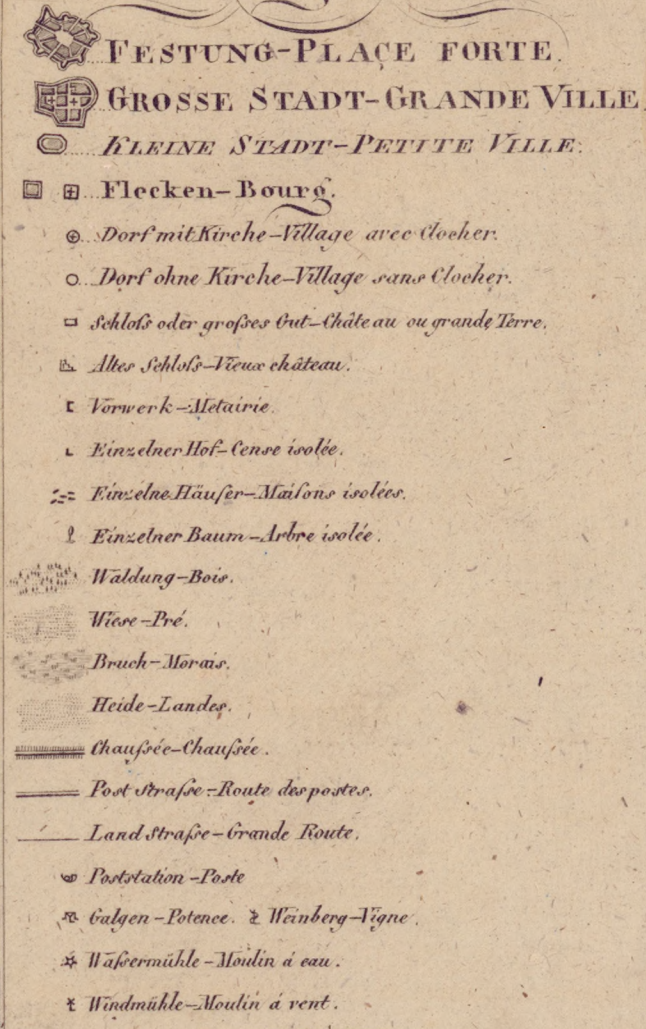 FESTUNG-PLACE FORTE.
GROSSE STADT-GRANDE VILLE.
KLEINE STADT-PETITE VILLE.
Flecken-Bourg.
Dorf mit Kirche-Village avec Clocher.
Dorf ohne Kirche-Village sans Clocher.
Schloſs oder groſses Gut-Château ou grande Terre.
Altes Schloſs-Vieux château.
Vorwerk-Metairie.
Einzelner Hof-Cense isolée.
Einzelne Häuſer-Maiſons isolées.
Einzelner Baum-Arbre isolée.
Waldung-Bois.
Wiese-Pré.
Bruch-Morais.
Heide-Landes.
Chauſsée-Chauſsée.
Post Straſse-Route des postes.
Land Straſse-Grande Route.
Poststation-Poste
Galgen-Potence. Weinberg-Vigne.
Waſsermühle-Moulin á eau.
Windmühle-Moulin á vent.